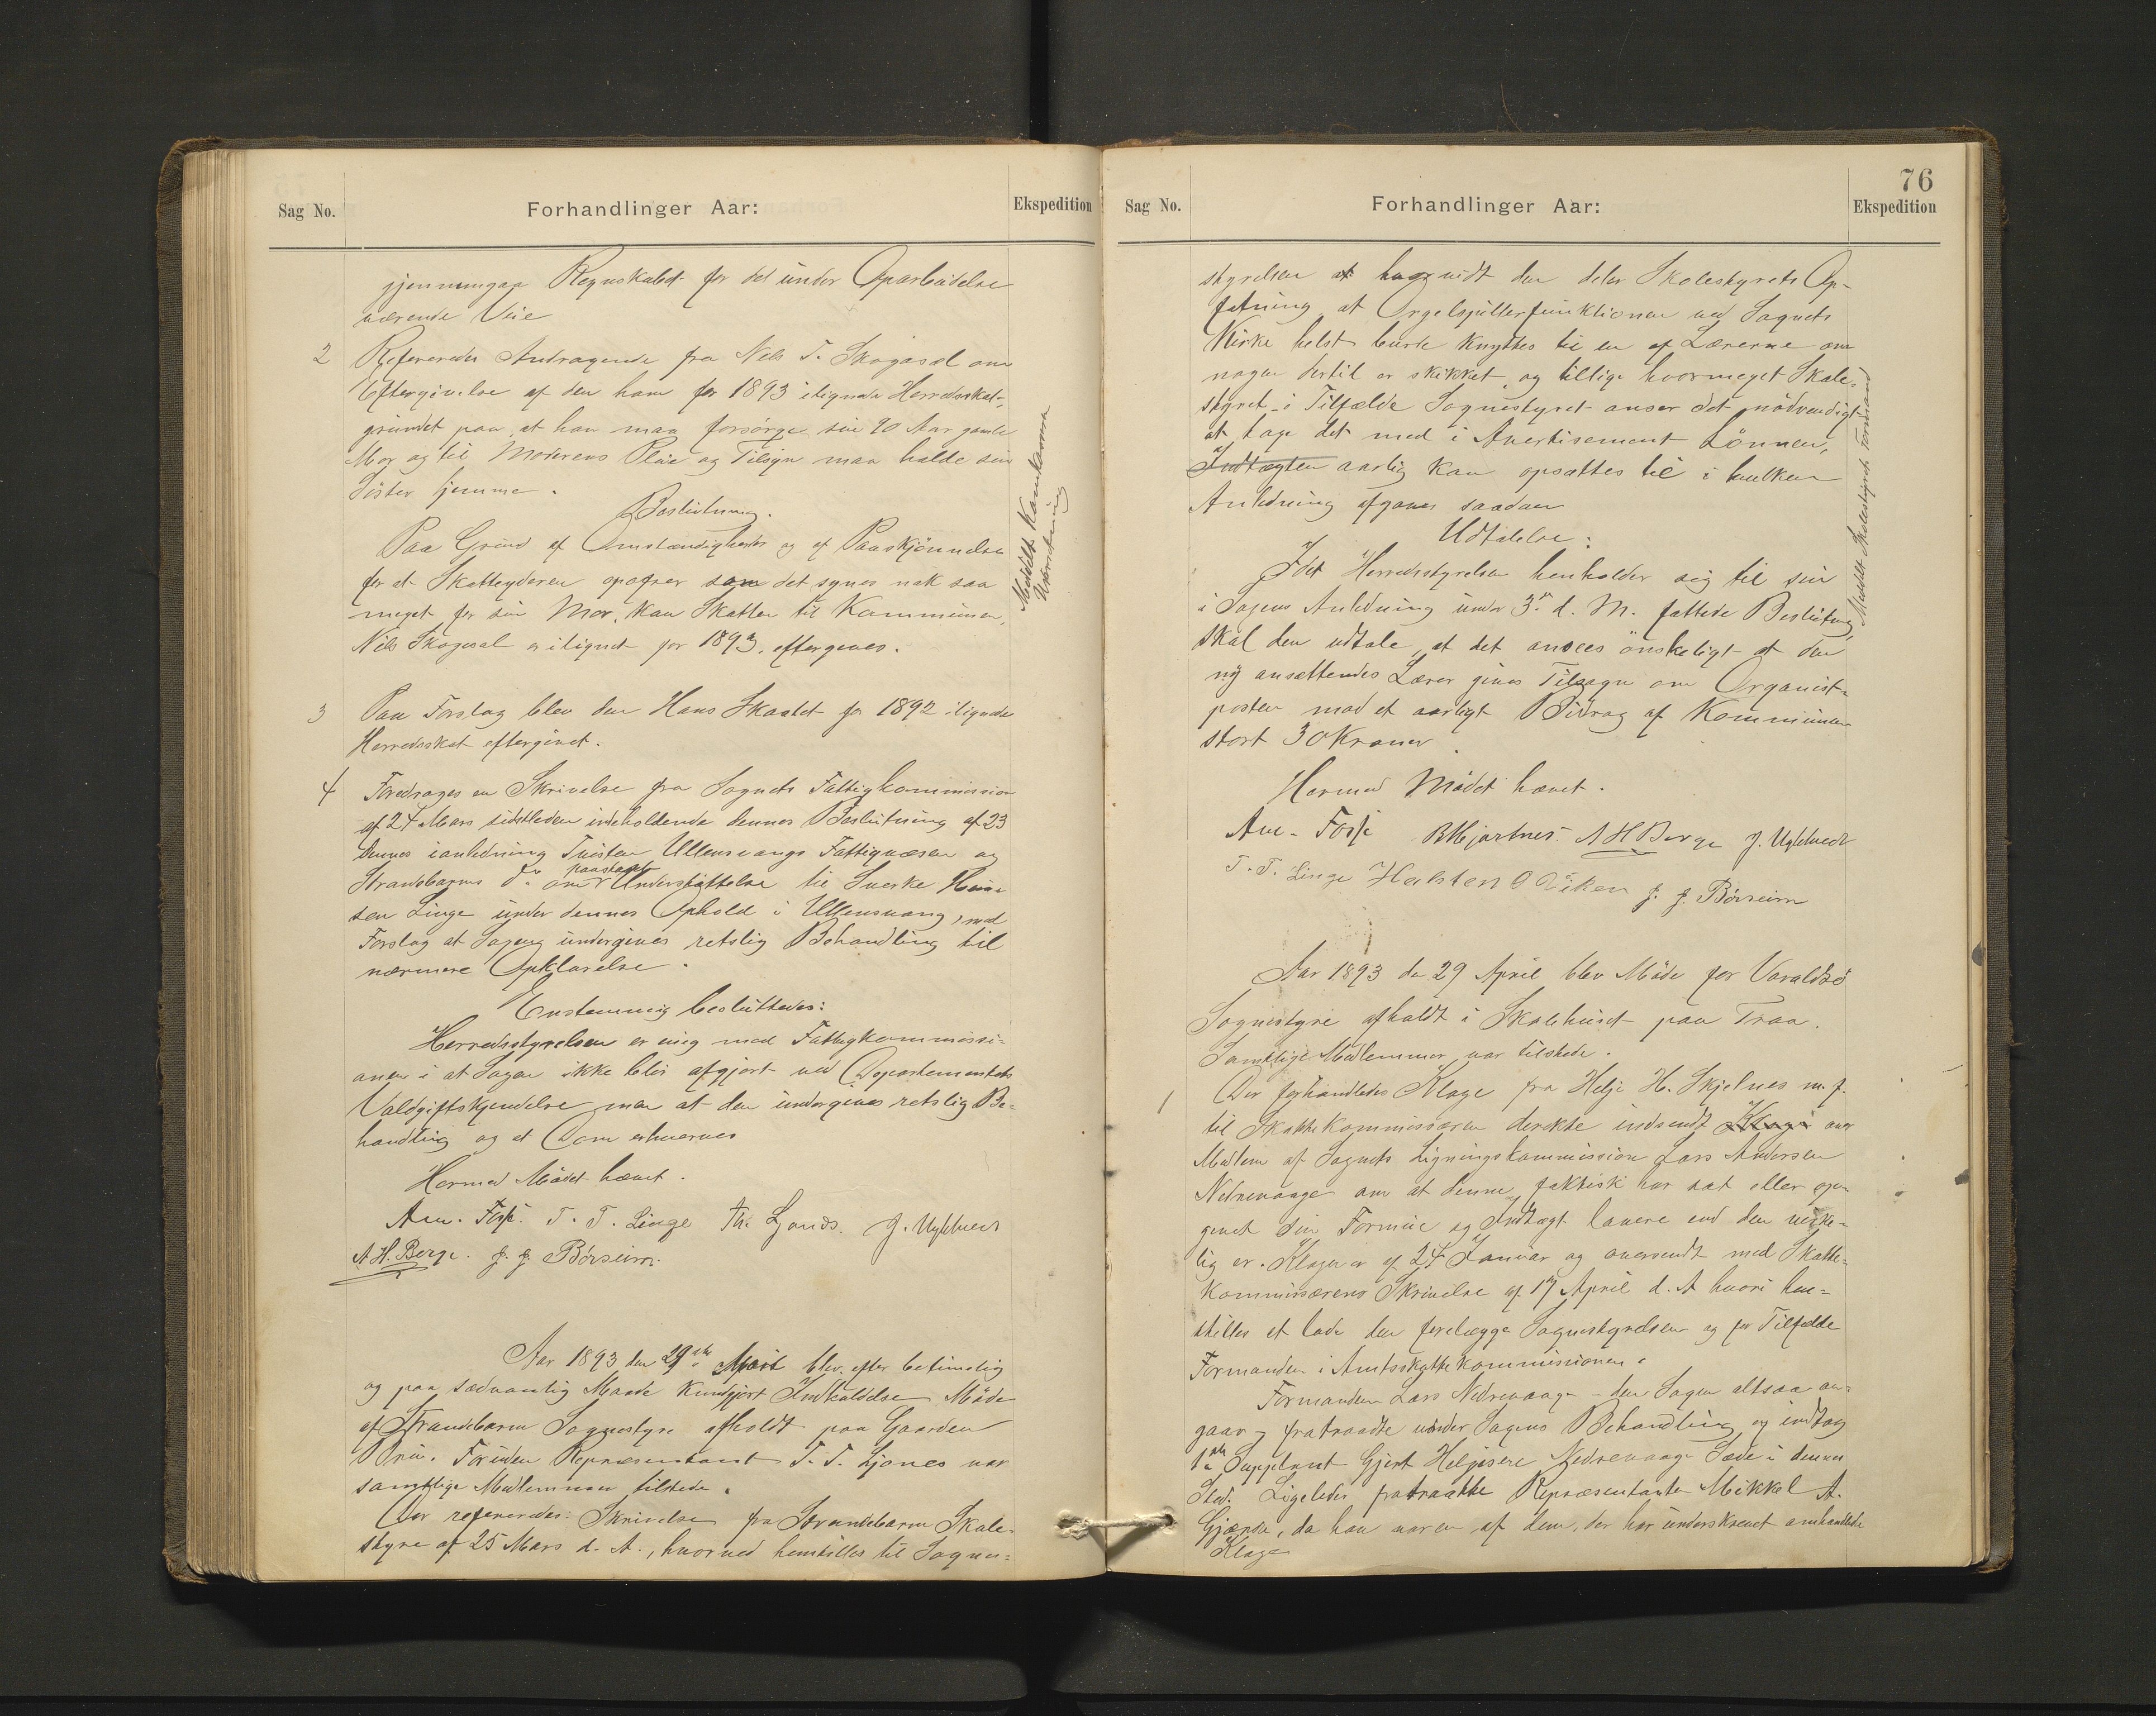 Sag No.
Forhandlinger Aar:
Ekspedition
gjennemgaa Regnskabet for det under Oparbeidelse
værende Veie
2 Refereredes Andragende fra Nils T. Skogasel om
Eftergivelse af den ham for 1893 ilignede Herredsskat,
grundet paa, at han maa forsørge sin 90 Aar gamle
Mor og til Moderens Pleie og Tilsyn maa holde sin
Søster hjemme.
Beslutning.
Paa Grund af Omstændigheder og af Paaskjønnelse
for at Skatteyderen opofrer som det synes nok saa
meget for sin Mor, kan Skatten til Kommunen,
Nils Skogasel er ilignet for 1893, eftergives.
Meddelt Kamkerne
3 Paa Forslag blev den Hans Skaatet for 1892 ilignede
Herredsskat eftergivet.
4 Foredroges en Skrivelse fra Sognets Fattigkommission
af 24 Mars sidstleden indeholdende dennes Beslutning af 23
dennes i anledning Tvisten Ullensvangs Fattigvæsen og
Strandebarms do om paastaaet Understøttelse til Sverke
sen Linge under dennes Ophold i Ullensvang, med
Forslag at Sagen undergives retslig Behandling til
nærmere Opklarelse.
Enstemmig besluttedes:
Herredsstyrelsen er enig med Fattigkommissi-
onen i at Sagen ikke blir afgjort ved Departementets
Voldgiftskjendelse men at den undergives retslig Be-
handling og at Dom erhverves
Hermed Mødet hævet.
Am. Fosse. T. T. Linge Th. Ljones. J. Ugletvedt
A H. Berge. J. J. Børseim.
Aar 1893 den 29de April blev efter betimelig
og paa sædvanlig Maade kundgjort Indkaldelse Møde
af Strandebarm Sognestyre afholdt paa Gaarden
Bru. Foruden Repræsentant T. T. Ljones var
samtlige Medlemmer tilstede.
Der refereredes: Skrivelse fra Strandebarm Skole-
styre af 25 Mars d. A., hvorved henstilles til Sogne-
76
Sag No.
Forhandlinger Aar:
Ekspedition
styrelsen at hvorvidt den deler Skolestyrets Op-
fatning at Orgelspillerfunktionen ved Sognets
Kirke helst burde knyttes til en af Lærerne om
nogen dertil er skikket, og tillige hvormeget Skole-
styret i Tilfælde Sognestyret anser det nødvendigt
at tage det med i Avertisement Lønnen,
Indtægten aarlig kan opsættes til i hvilken
Anledning afgaves saadan
Udtalelse:
Idet Herredsstyrelsen henholder sig til sin
i Sagens Anledning under 3die d. M. fattede Beslutning,
skal den udtale, at det ansees ønskeligt at den
ny ansættendes Lærer gives Tilsagn om Organist-
posten mod et aarligt Bidrag af Kommunen
stort 30 Kroner.
Meddelt Skolestyrets Formand
Hermed Mødet hævet.
Am. Fosse B Hjartnes. A H Berge J. Ugletvedt
T. T. Linge Halsten O Viken J. J. Børseim
Aar 1893 den 29 April blev Møde for Varaldsø
Sognestyre afholdt i Skolehuset paa Traa.
Samtlige Medlemmer var tilstede.
1 Der forhandledes Klage fra Helje H. Skjelnes m. f.
til Skattekommissæren direkte indsendt Klage over
Medlem af Sognets Ligningskommission Lars Andersen
Nedrevaage om at denne faktisk har sat eller opp-
givet sin Formue og Indtægt lavere end den virke-
lig er. Klagen er af 24 Januar og oversendt med Skatte-
kommissærens Skrivelse af 17 April d. A hvori hen-
stilles at lade den forelægge Sognestyrelsen og for Tilfælde
Formanden i Amtsskattekommissionen.
Formanden Lars Nedrevaage – den Sagen altsaa an-
gaar – fratraadte under Sagens Behandling og indtog
1ste Suppleant Gjert Helgesen Nedrevaage Sæde i dennes
Sted. Ligeledes fratraadte Repræsentanten Mikkel A.
Gjærde, da han var en af dem, der har underskrevet omhandlede
Klage